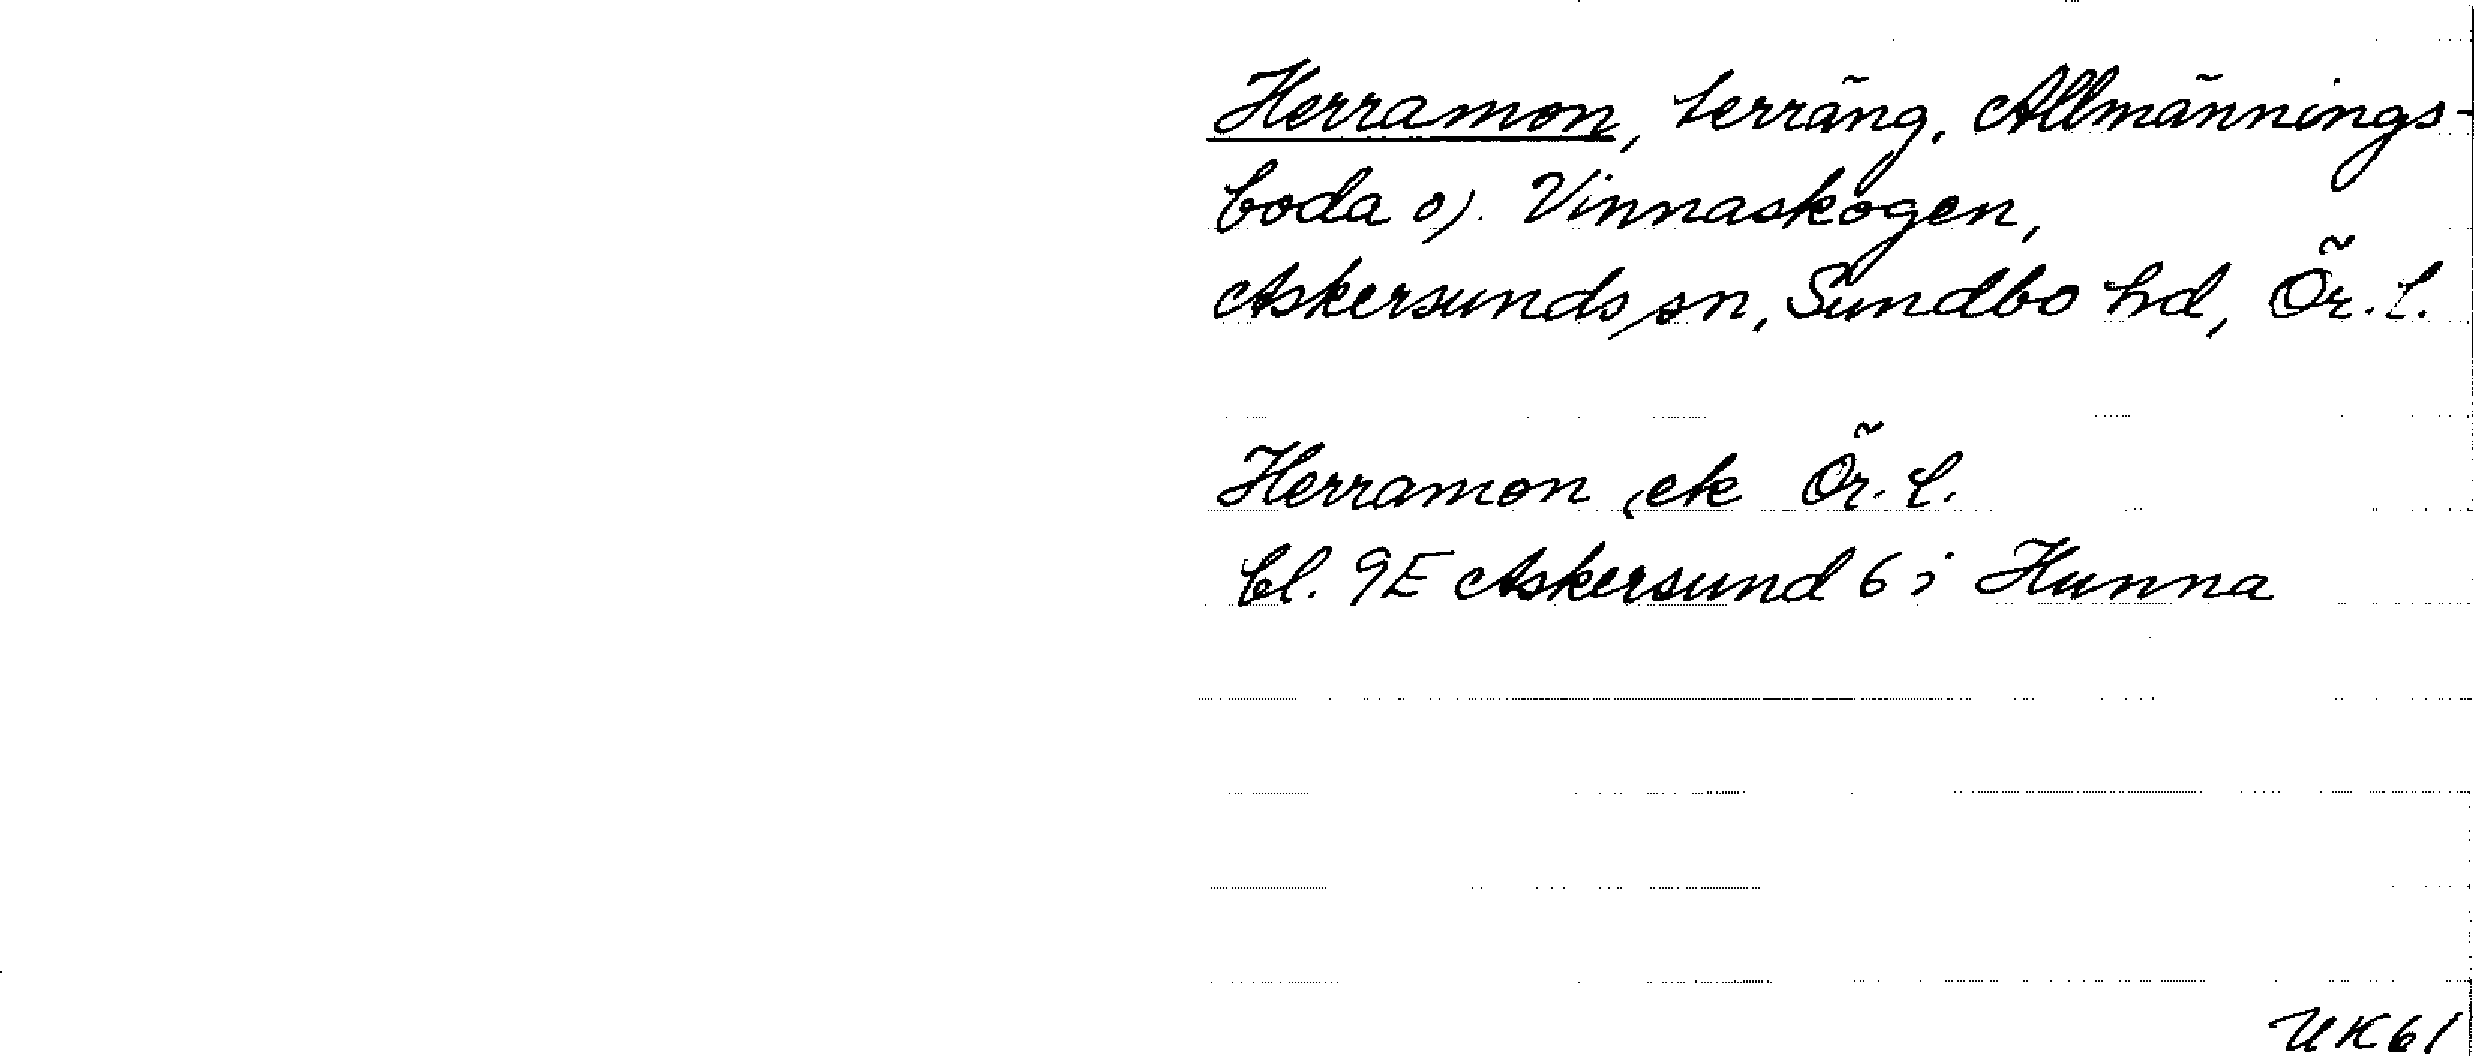 Herramon, terräng, Allmännings-
boda o). Vinnaskogen,
Askersunds sn, Sundbo hd, Ör. l.
Herramon, ek Ör. l.
bl. 9E Askersund 6 i Hunna
UK61